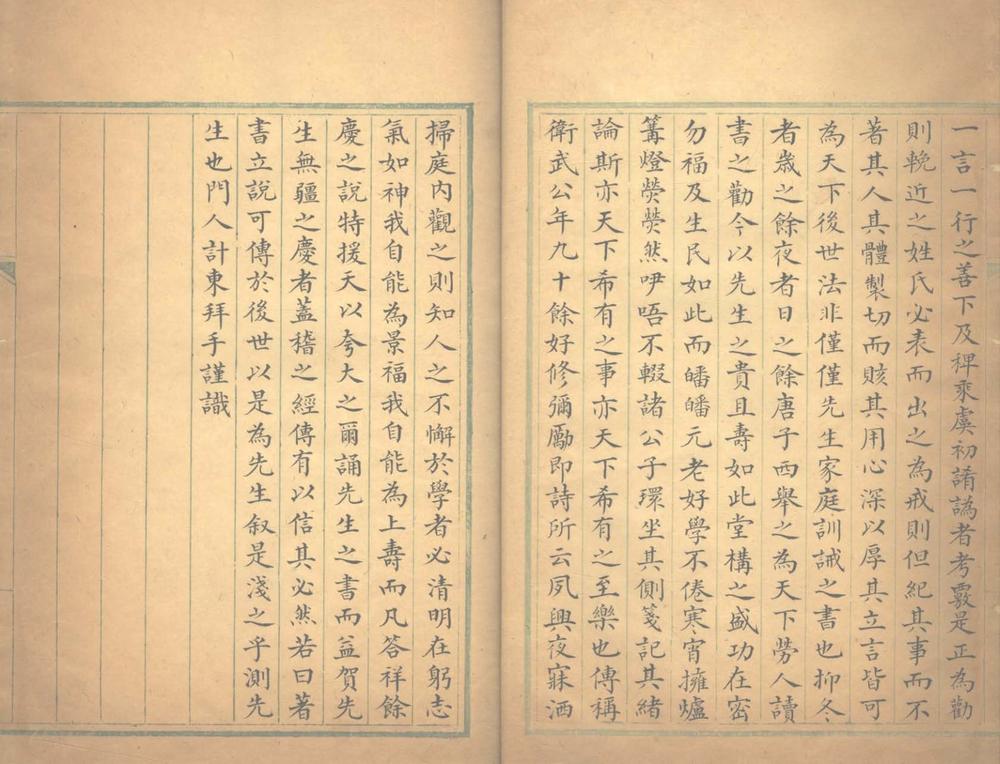 一言一行之善下及稗乘虞初諝譌者考覈是正為勸
則輓近之姓氏必表而出之為戒則但紀其事而不
著其人其體製切而賅其用心深以厚其立言皆可
為天下後世法非僅僅先生家庭訓誡之書也抑冬
者歲之餘夜者日之餘唐子西舉之為天下勞人讀
書之勸今以先生之貴且壽如此堂構之盛功在密
勿福及生民如此而皤皤元老好學不倦寒宵擁爐
篝燈熒熒然咿唔不輟諸公子環坐其側箋記其緒
論斯亦天下希有之事亦天下希有之至樂也傳稱
衛武公年九十餘好修彌勵即詩所云夙興夜寐洒
掃庭內觀之則知人之不懈於學者必清明在躬志
氣如神我自能為景福我自能為上壽而凡答祥餘
慶之說特援天以夸大之爾誦先生之書而益賀先
生無疆之慶者蓋稽之經傳有以信其必然若曰著
書立說可傳於後世以是為先生叙是淺之乎測先
生也門人計東拜手謹識